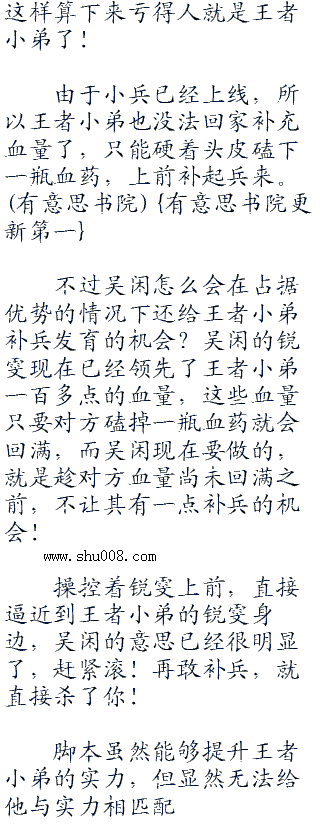 这样算下来亏得人就是王者
小弟了！
由于小兵已经上线，所
以王者小弟也没法回家补充
血量了，只能硬着头皮磕下
一瓶血药，上前补起兵来。
(有意思书院) {有意思书院更
新第一}
不过吴闲怎么会在占据
优势的情况下还给王者小弟
补兵发育的机会？吴闲的锐
雯现在已经领先了王者小弟
一百多点的血量，这些血量
只要对方磕掉一瓶血药就会
回满，而吴闲现在要做的，
就是趁对方血量尚未回满之
前，不让其有一点补兵的机
会！
www.shu008.com
操控着锐雯上前，直接
逼近到王者小弟的锐雯身
边，吴闲的意思已经很明显
了，赶紧滚！再敢补兵，就
直接杀了你！
脚本虽然能够提升王者
小弟的实力，但显然无法给
他与实力相匹配